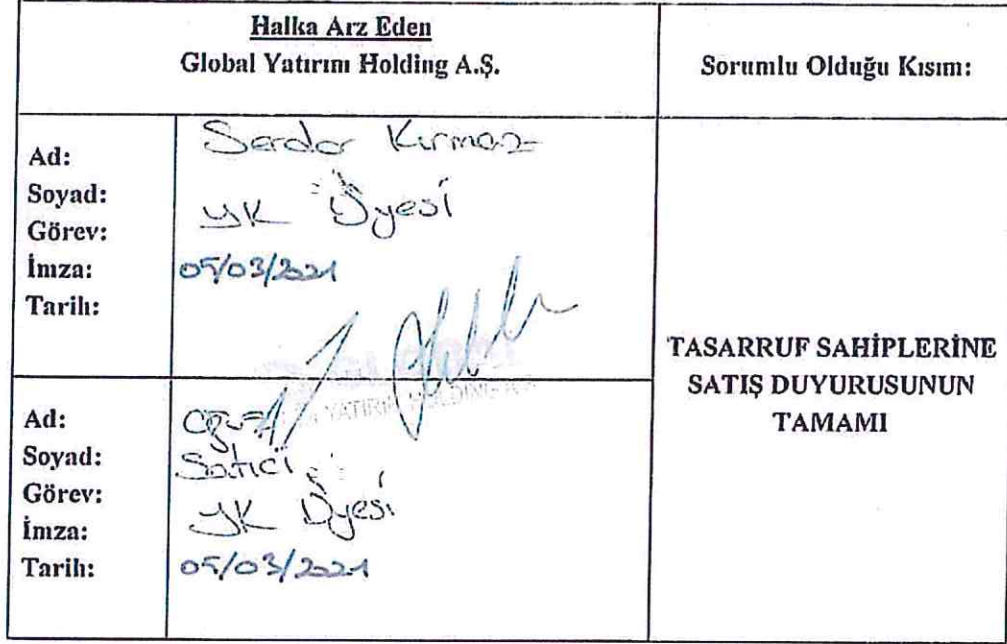 Halka Arz Eden
Global Yatırım Holding A.Ş.
Sorumlu Olduğu Kısım:
Ad:
Soyad:
Görev:
İmza:
Tarih:
Serdar Kırmaz
YK Üyesi
05/03/2021
TASARRUF SAHİPLERİNE
SATIŞ DUYURUSUNUN
TAMAMI
Ad:
Soyad:
Görev:
İmza:
Tarih:
YATIRIM HOLDING
Oğuz
Satıcı
YK Üyesi
05/03/2021